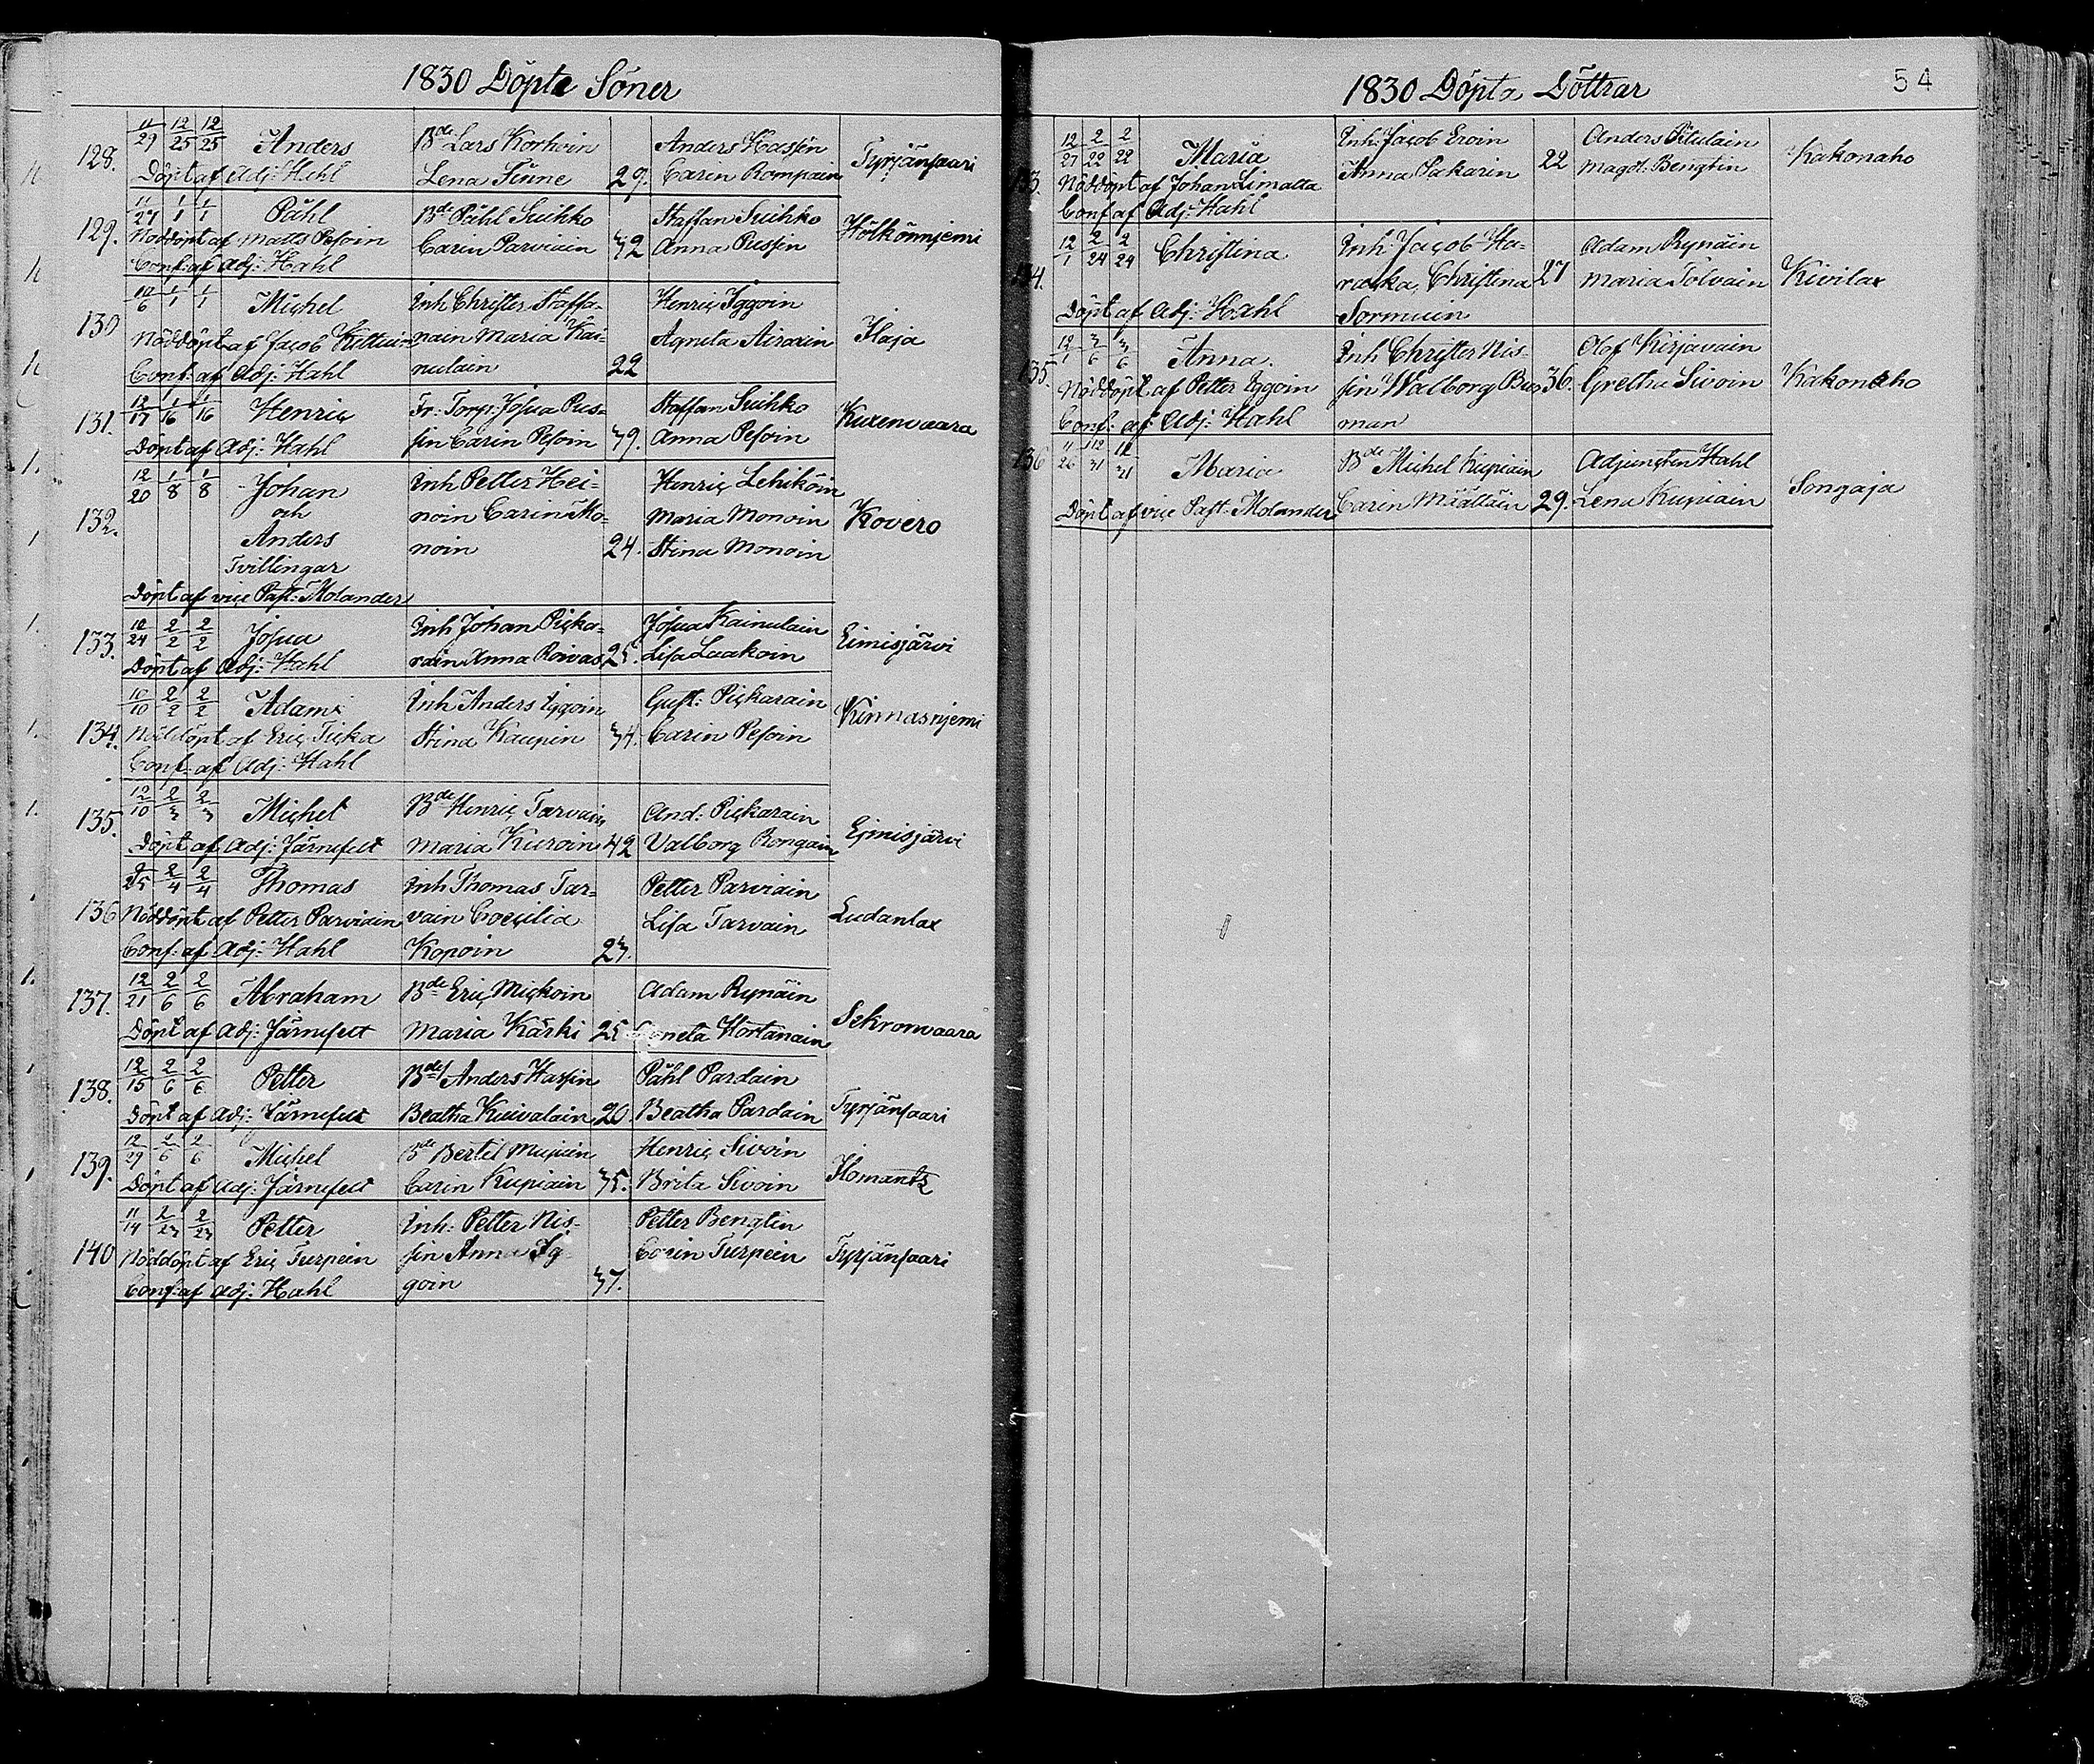 1830 Döpte Söner
128. 11/29 12/25 12/25 Anders Bde Lars Korhoin Anders Hassin Tyrjänsaari
Döpt af Adj: Hahl Lena Finne 29. Carin Rompain
129. 11/27 1/1 1/1 Påhl Bde Påhl Suihko Staffan Suihko Hölkönnjemi
Nöddöpt af Matts Pesoin Carin Parviain 42 Anna Pussin
Conf: af Adj: Hahl
130 10/6 1/1 1/1 Michel Inh Christer Staffa- Henric Iggoin Ilaja
Nöddöpt af Jacob nain Maria Kai- Agneta Airaxin
Conf: af Adj: Hahl nulain 22
131. 12/17 1/16 1/16 Henric Fr: Torp: Josua Pus- Staffan Suihko Kuxenvaara
Döpt af Adj: Hahl sin Carin Pesoin 39. Anna Pesoin
132. 12/20 1/8 1/8 Johan Inh Petter Hei- Henric Lehikoin Kovero
och noin Carin Mo- Maria Monoin
Anders noin 24. Stina Monoin
Tvillingar
Döpt af vice Past: Molander
133. 12/24 2/2 2/2 Josua Inh Johan Picka- Josua Kainulain Eimisjärvi
Döpt af Adj: Hahl rain Anna Roivas 25. Lisa Laakoin
134. 10/10 2/2 2/2 Adam Inh Anders Iggoin Gust: Pickarain Kinnasnjemi
Nöddöpt af Eric Ticka Stina Kaupin 34. Carin Pesoin
Conf: af Adj: Hahl
135. 12/10 2/3 2/3 Michel Bde Henric Tarvain And: Pickarain Ejmisjärvi
Döpt af Adj: Järnefelt Maria Kuroin 42 Valborg Rongain
136 2/4 2/4 Thomas Inh Thomas Tar- Petter Parviain Ludanlax
Nöddöpt af Petter Parviain vain Coecilia Lisa Tarvain
Conf: af Adj: Hahl Kopoin 23.
137. 12/21 2/6 2/6 Abraham Bde Eric Mickoin Adam Rynäin Sekronvaara
Döpt af Adj: Järnefelt Maria Kärki 25 Agneta Hortanain
138. 12/15 2/6 2/6 Petter Bde Anders Hassin Påhl Pardain Tyrjänsaari
Döpt af Adj: Järnefelt Beatha Kuivalain 20. Beatha Pardain
139. 12/29 2/6 2/6 Michel Bde Bertil Henric Sivoin Ilomantz
Döpt af Adj: Järnefelt Carin Kupiain 35. Brita Sivoin
140 11/14 2/23 2/23 Petter Inh: Petter Nis- Petter Bengtin Tyrjänsaari
Nöddöpt af Eric Turpein sin Anna Ig- Carin Turpein
Conf: af Adj: Hahl goin 37.
1830 Döpta Döttrar 54
12/27 2/22 2/22 Maria Inh. Jacob Eroin Anders Pitulain Kakonaho
Nöddöpt af Johan Limatta Anna Pakarin 22 Magd: Bengtin
Conf af Adj: Hahl
134. 12/1 2/24 2/24 Christina Inh Jacob Ha- Adam Rynäin Kivilax
racka Christina 27 Maria Tolvain
Döpt af Adj: Hahl Sormuin
135. 12/1 3/6 3/6 Anna Inh Christer Nis- Olof Kirjavain Kakonaho
Nöddöpt af Petter Iggoin sin Walborg Bus 36. Gretha Sivoin
Conf: af Adj: Hahl man
136 11/26 12/31 12/31 Maria Bde Michel Kupiain Adjuncten Hahl Songaja
Döpt af vice Past: Molander Carin Määttäin 29. Lena Kupiain